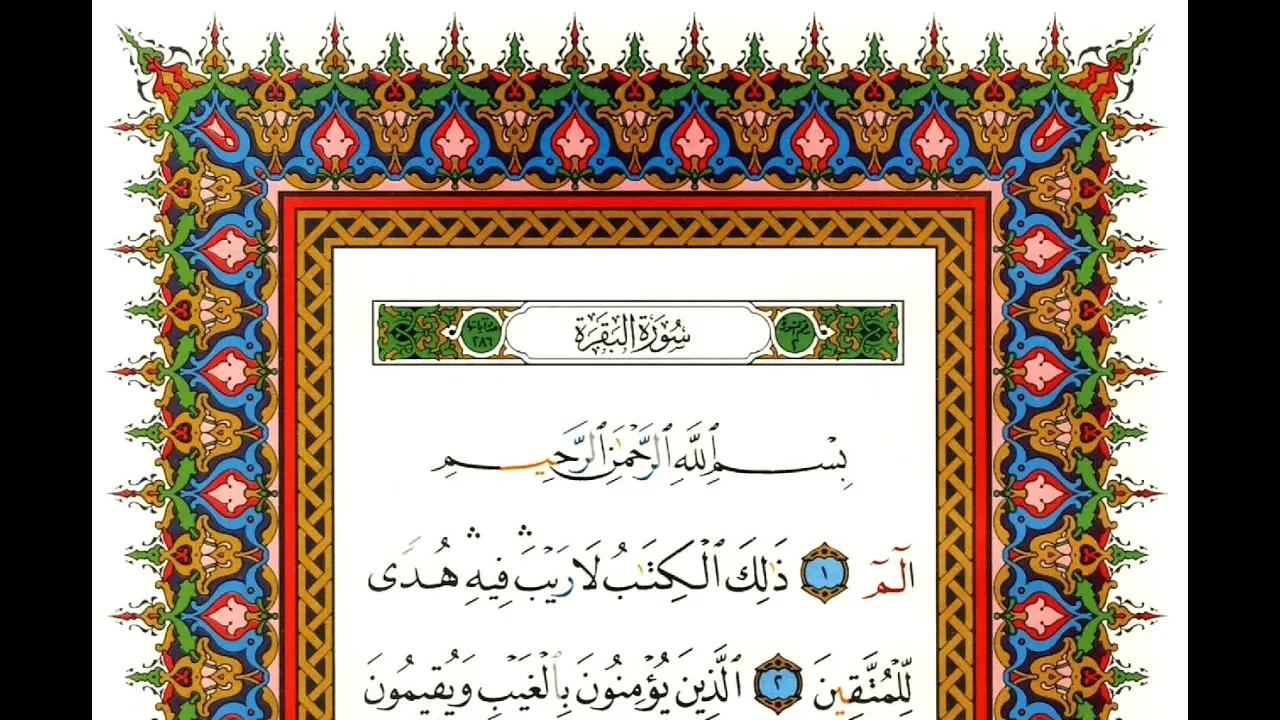 ترتيبها ٢ سُورَةُ البَقَرَةِ آياتها ٢٨٦
بِسْمِ ٱللَّهِ ٱلرَّحْمَٰنِ ٱلرَّحِيمِ
الٓمٓ ١ ذَٰلِكَ ٱلْكِتَٰبُ لَا رَيْبَ ۛ فِيهِ ۛ هُدًى
لِّلْمُتَّقِينَ ٢ ٱلَّذِينَ يُؤْمِنُونَ بِٱلْغَيْبِ وَيُقِيمُونَ